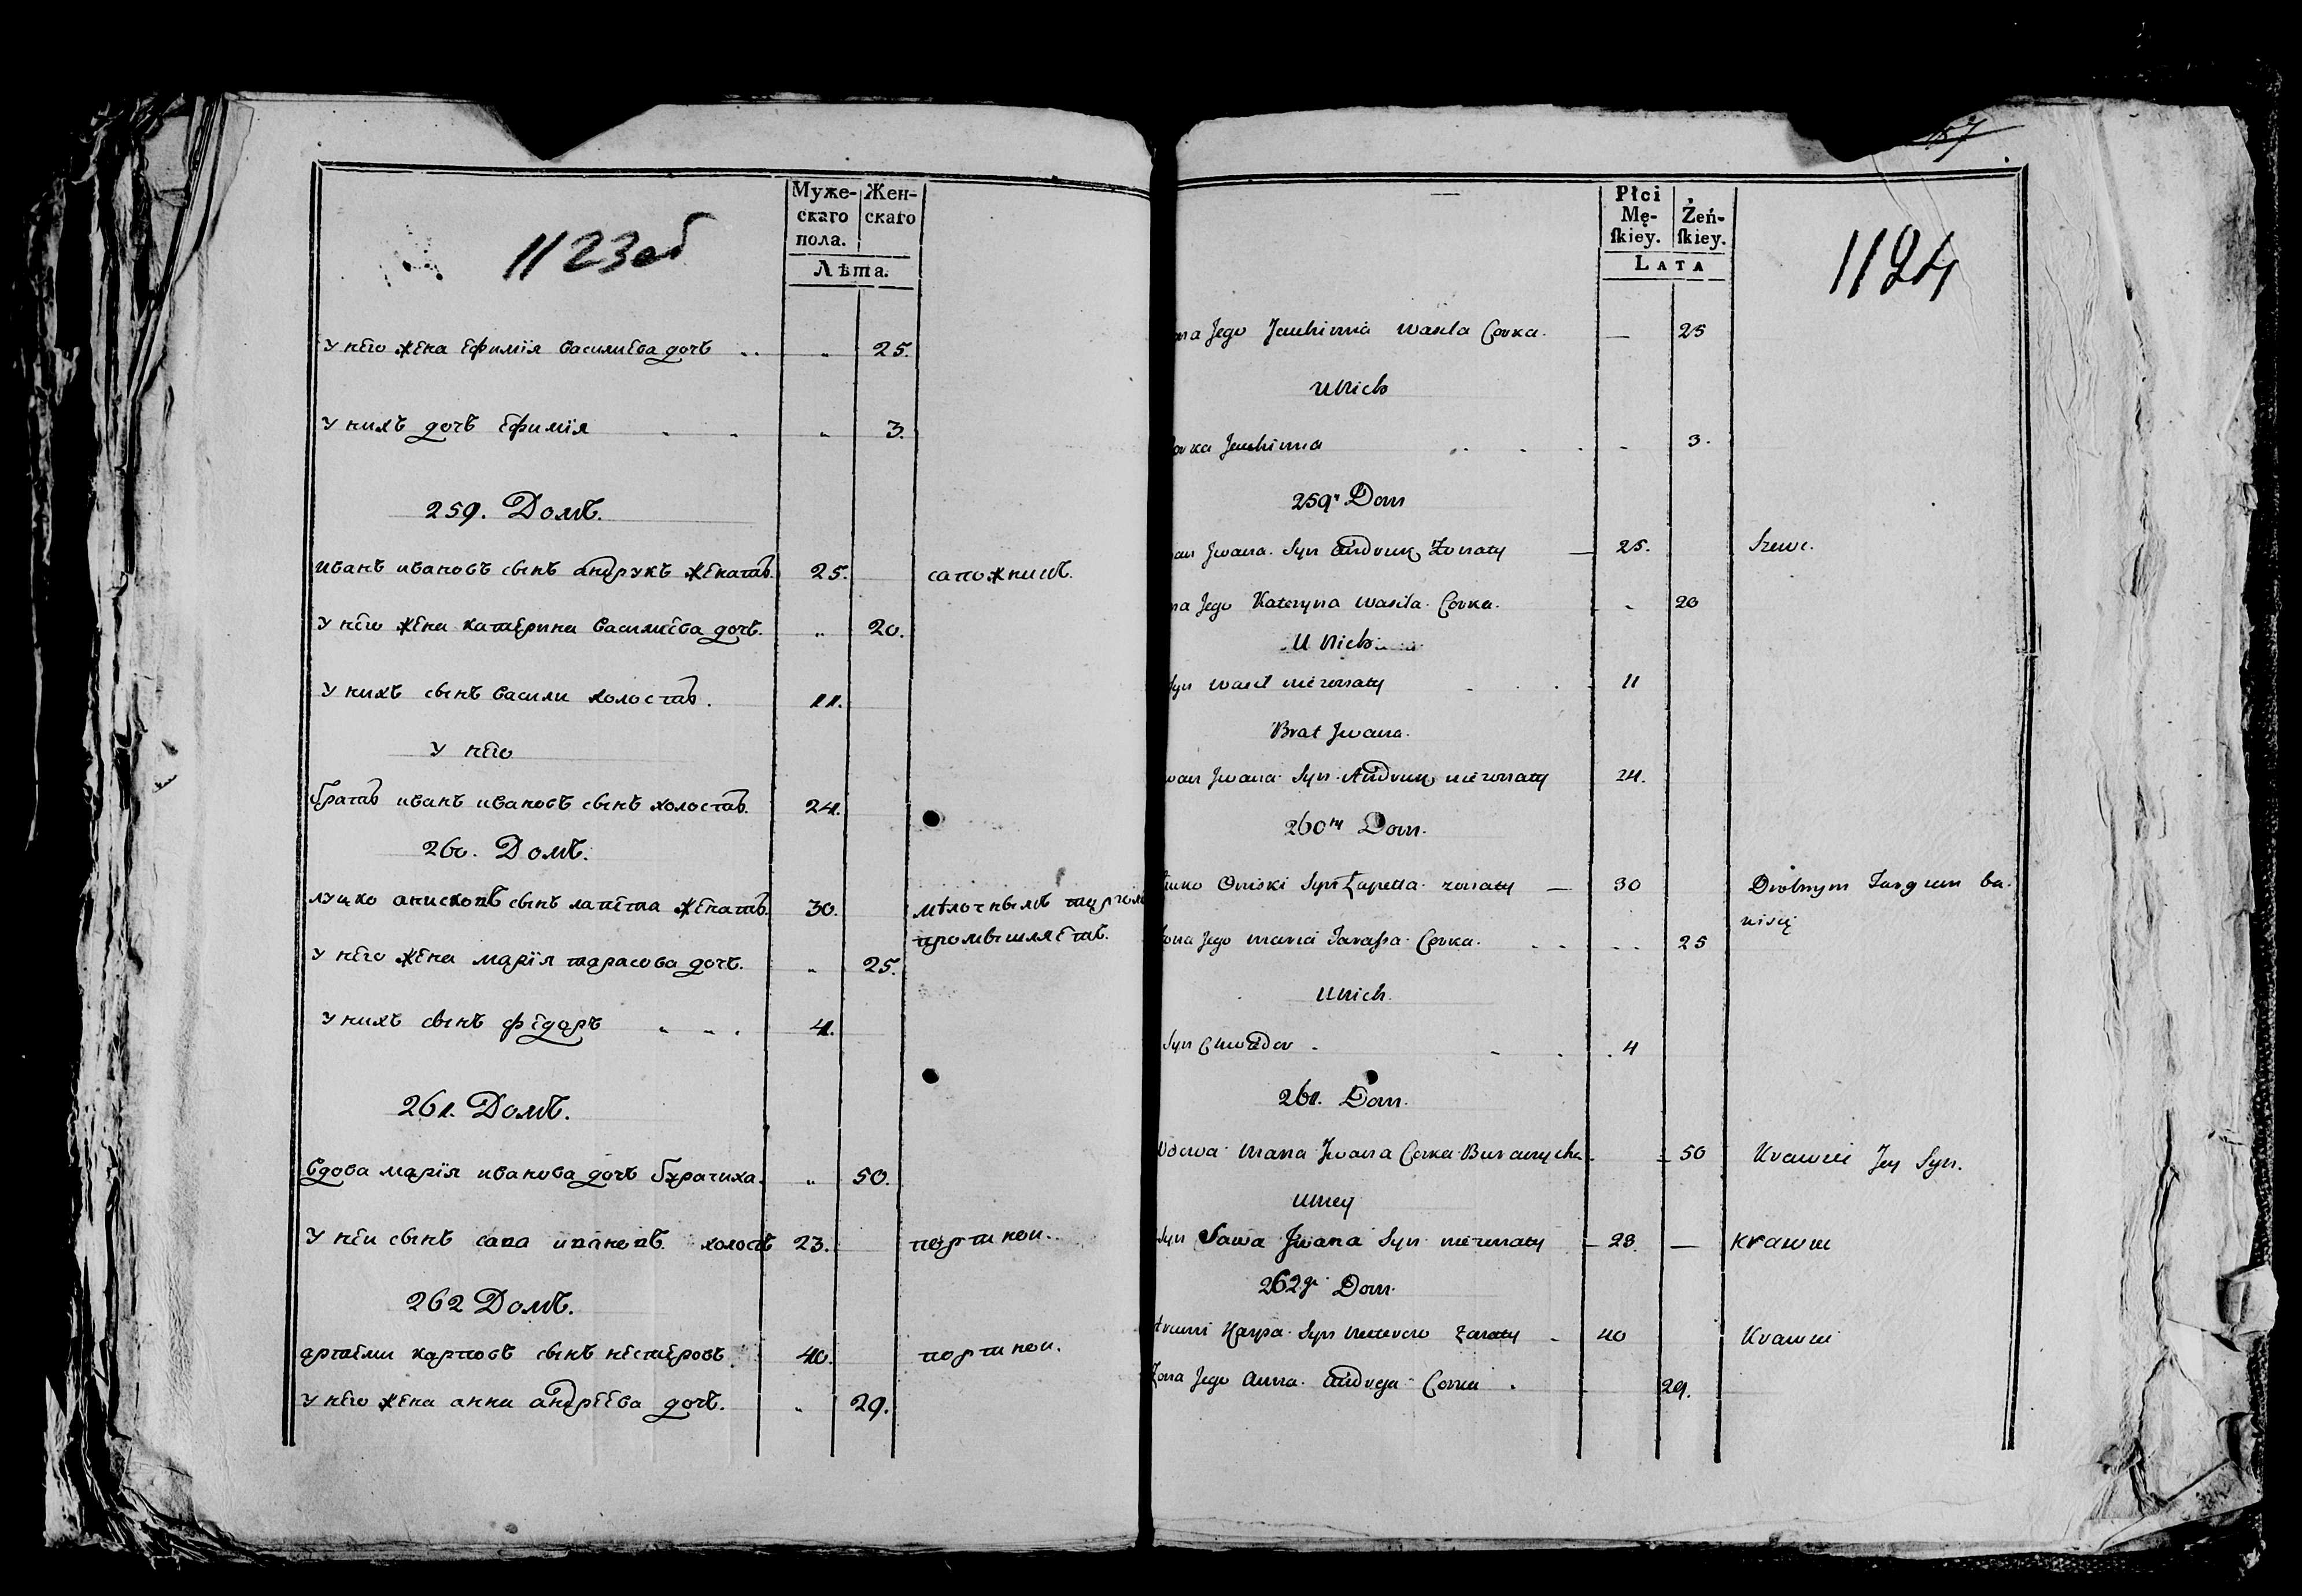 1123об
Муже-
скаго
пола.
Жен-
скаго
Лѣта.
У него жена Ефимія василиева дочь 25.
У нихъ дочь Ефимія 3.
259. Домъ.
иванъ ивановъ сынъ андрукъ женатъ. 25. сапожникъ.
У него жена катерина василиева дочь. 20.
У нихъ сынъ василии холостъ. 11.
У него
братъ иванъ ивановъ сынъ холостъ. 24.
260. Домъ.
лучко сынъ лапета женатъ. 30. мѣлочнымъ
промышляетъ.
У него жена марія тарасова дочь. 25.
У нихъ сынъ федоръ 4.
261. Домъ.
вдова марія иванова дочь бурачиха. 50.
У неи сынъ сава ивановъ. холостъ 23. портнои.
262 Домъ.
артеми карповъ сынъ нестеровъ. 40. портнои.
У него жена анна андреева дочь. 29.
Płci
Mę-
ſkiey.
Żeń-
ſkiey.
LATA
1124
Jego Jeuchimia Wasila Corka. — 25
U Nich
Jeuchimia 3.
259 Dom
Jwana Syn Andruk Zonaty — 25. Szewc.
Jego Kateryna Wasila Corka. 20
U Nich
Syn Wasil niezonaty 11
Brat Jwana.
Jwana Syn Andruk niezonaty 24.
260ty Dom.
Syn Łapetta zonaty — 30 Drobnym Targiem ba-
Jego Maria Tarassa Corka. 25
U Nich.
Syn Chwedor 4
261. Dom.
Wdowa Maria Jwana Corka 50 Krawiec Jey Syn.
U niey
Syn Sawa Jwana Syn niezonaty — 23. — Krawiec
262gi Dom.
Karpa Syn zonaty 40 Krawiec
Zona Jego Anna Andreja Corka 29.